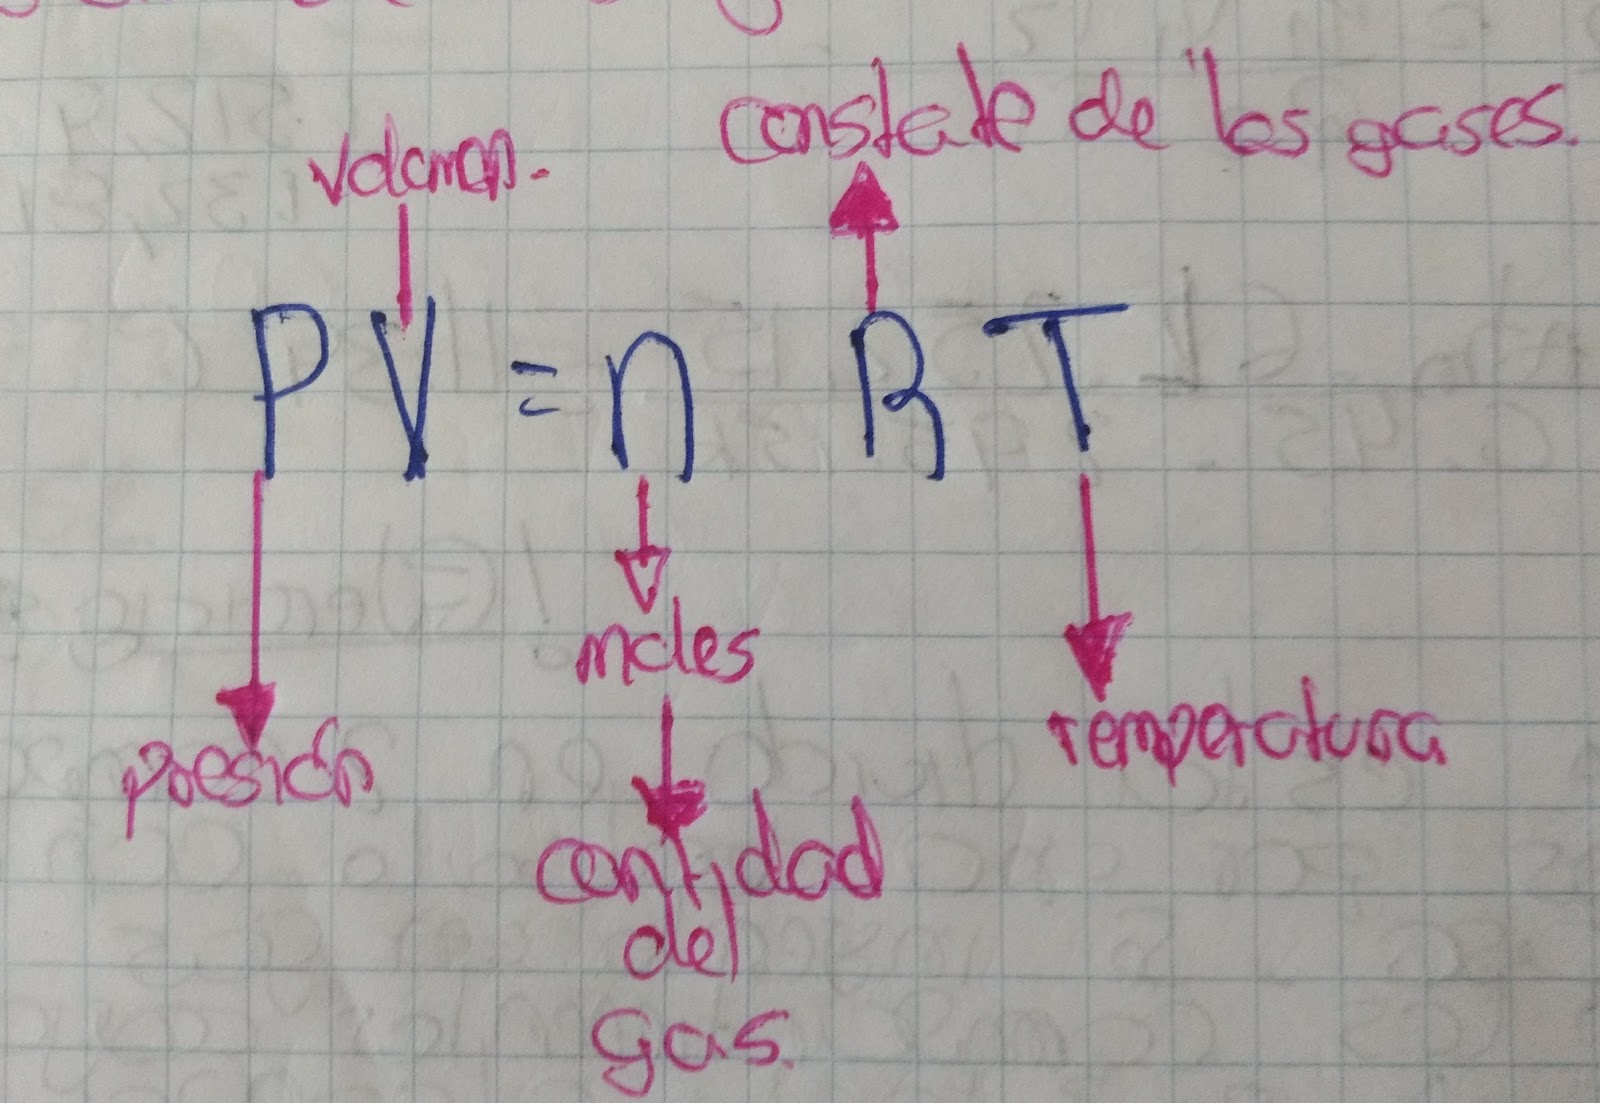 constate de los gases.
volumen.
PV = n R T
moles
presión
temperatura
cantidad
del
gas.